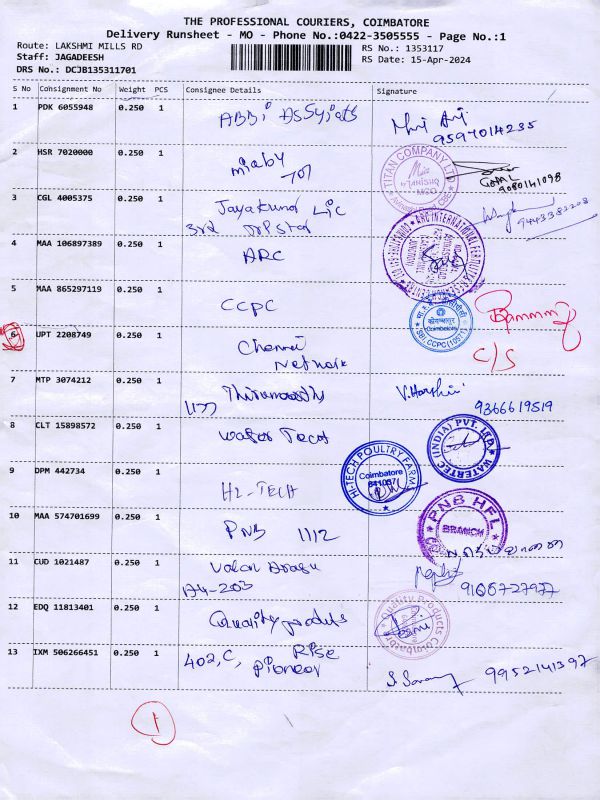 THE PROFESSIONAL COURIERS, COIMBATORE
Delivery Runsheet - MO - Phone No.:0422-3505555 - Page No.:1
Route: LAKSHMI MILLS RD
Staff: JAGADEESH
DRS No.: DCJB135311701
RS No.: 1353117
RS Date: 15-Apr-2024
S No Consignment No Weight PCS Consignee Details Signature
1 PDK 6055948 0.250 1
9597014235
2 HSR 7020000 0.250 1 701
TITAN COMPANY LTD
TANISHQ
GOPAL
9080141098
3 CGL 4005375 0.250 1 Jayakumar LIC
3rd
9443383208
4 MAA 106897389 0.250 1 ARC
ARC INTERNATIONAL FERTILITY
5 MAA 865297119 0.250 1 CCPC
Coimbatore
SBI, CCPC(10511)
UPT 2208749 0.250 1 Chennai
Network
C/S
7 MTP 3074212 0.250 1 Thirumoorthy
1177
V.Harshini
9366619519
8 CLT 15898572 0.250 1 water Tech
WATERTEC (INDIA) PVT. LTD.
9 DPM 442734 0.250 1 HI-TECH
HI-TECH POULTRY FARM
Coimbatore
10 MAA 574701699 0.250 1 PNB 1112
PNB HFL
BRANCH
11 CUD 1021487 0.250 1 Valan Arasu
A4-203
12 EDQ 11813401 0.250 1 Quality produts
Quality Products
Coimbatore
13 IXM 506266451 0.250 1 402, C, Rise
pioneer
9952141397
1